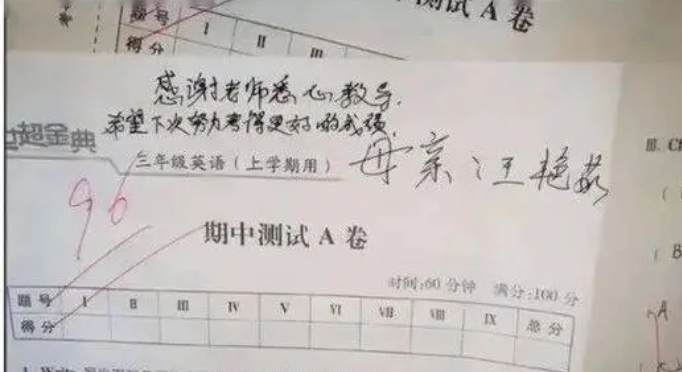 测试 A 卷
题号 I II III
得分
感谢老师悉心教导.
希望下次努力考得更好的成绩
超金典
三年级英语（上学期用）
母亲汪艳茹
96
期中测试 A 卷
时间:60 分钟 满分:100 分
题号 I II III IV V VI VII VIII IX 总分
得分
III.
(
( B
A